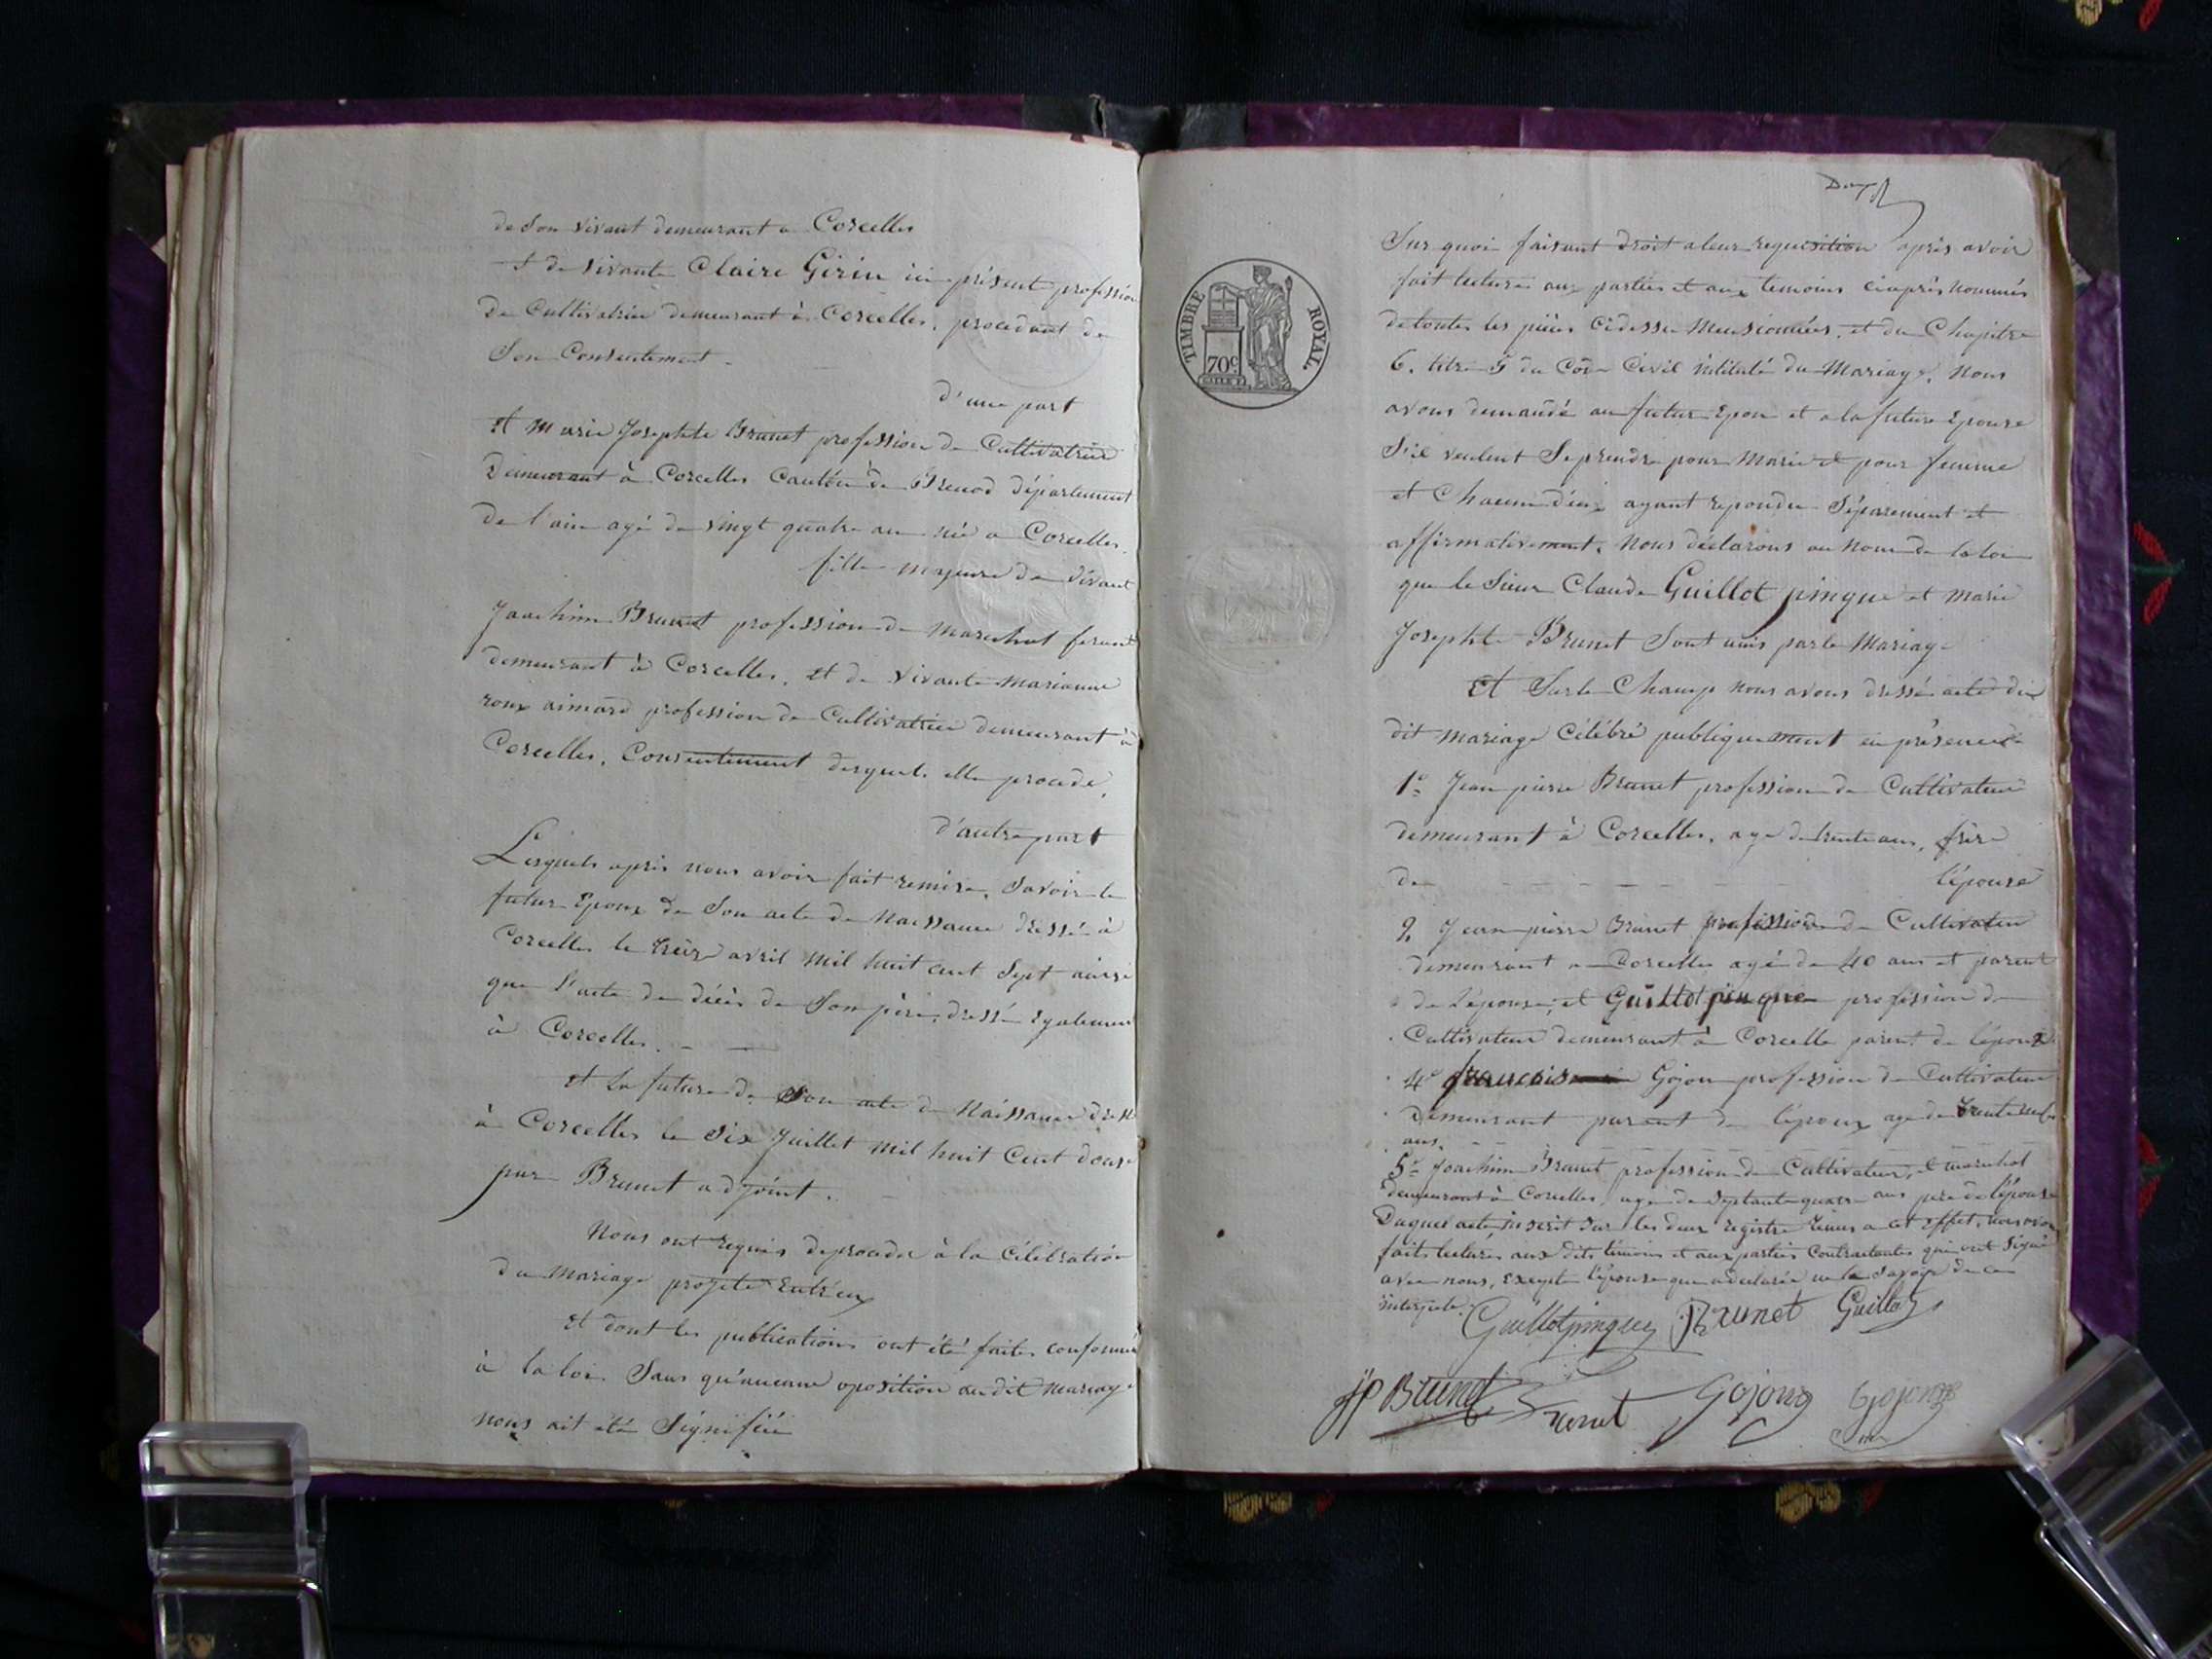 de Son vivant demeurant a Corcelles
et de vivante Claire Girin ici présent profession
De Cultivatrice demeurant à Corcelles, procedant de
Son Consentement.
d'une part
et Marie Josephte Brunet profession de Cultivatrice
Demeurant à Corcelles Canton de Brenod Département
de l'ain agé de vingt quatre an née a Corcelles.
fille majeure de vivant
Joachim Brunet profession de marechal ferant
demeurant à Corcelles, et de vivante Marianne
roux aimard profession de Cultivatrice demeurant à
Corcelles, Consentement desquels elle procede,
d'autre part
Lesquels après nous avoir fait remise, Savoir le
futur Epoux de Son acte de Naissance dressé à
Corcelles le treize avril mil huit cent Sept ainsi
que l'acte de décès de Son père, dressé Egalement
à Corcelles. - —
et la future de Son acte de Naissance dressé
à Corcelles le Six Juillet mil huit Cent douse
par Brunet adjoint.
Nous ont requis de proceder à la Célébration
du Mariage projeté Entr'eux
et dont les publications ont été faites conformé
à la loi. Sans qu'aucune oposition au dit Mariage
nous ait été Signifiée
Sur quoi faisant droit a leur requisition après avoir
fait lecture aux parties et aux temoins ciaprès nommés
de toutes les pièces cidessu mensionnées, et du Chapitre
6. titre 5 du Code Civil intitulé du Mariage. Nous
avons demandé au futur Epou et a la future Epouse
S'il veulent Se prendre pour Marie et pour femme
et Chacun d'eux ayant repondu Séparement et
affirmativement, Nous déclarons au Nom de la loi
que le Sieur Claude Guillot pingue et Marie
Josephte Brunet Sont unis par le Mariage
Et Sur le Champ nous avons dressé acte du
dit mariage Célébré publiquement en présence de
1° Jean pierre Brunet profession de Cultivateur
demeurant à Corcelles, age de trente ans, frère
de l'épouse
2. Jean pierre Brunet profession de Cultivateur
demeurant a Corcelles agé de 40 ans et parent
de l'épouse, et Guillot pingue profession de
Cultivateur demeurant à Corcelle parent de l'époux
4° francois Gojon profession de Cultivateur
Demeurant parent de l'époux age de trente
ans.
5° Joachim Brunet profession de Cultivateur, et marechal
demeurant à Corcelles, age de Septante quatre ans père de l'épouse
Duquel acte inscrit Sur les deux registre tenus a cet effet, nous avons
fait lecture aux dits témoins et aux parties Contractantes qui ont Signé
avec nous, excepté l'épouse que a declarée ne le Savoir de ce
interpelé.
Guillotpingue Brunet Guillot
jp Brunet Brunet Gojong Gojong
TIMBRE ROYAL.
70c